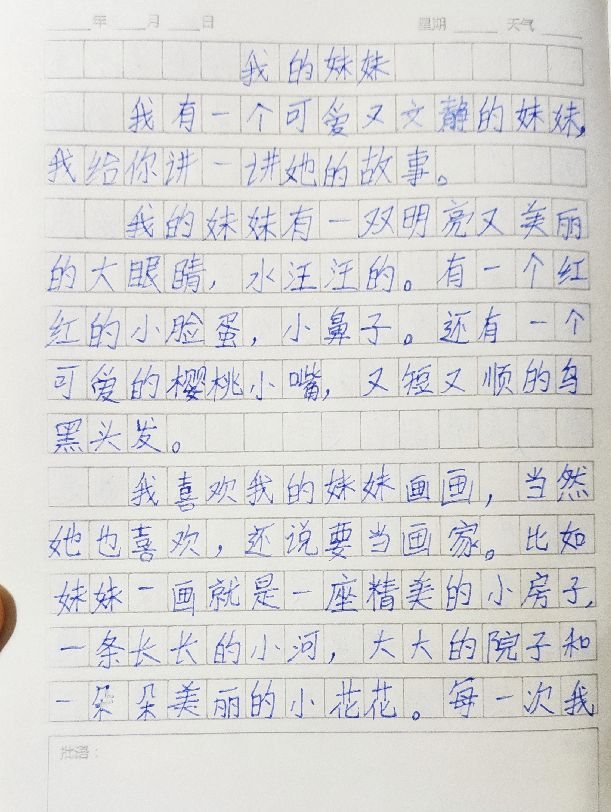 年 月 日 星期 天气
我的妹妹
我有一个可爱又文静的妹妹,
我给你讲一讲她的故事。
我的妹妹有一双明亮又美丽
的大眼睛，水汪汪的。有一个红
红的小脸蛋，小鼻子。还有一个
可爱的樱桃小嘴，又短又顺的乌
黑头发。
我喜欢我的妹妹画画，当然
她也喜欢，还说要当画家。比如
妹妹一画就是一座精美的小房子,
一条长长的小河，大大的院子和
一朵朵美丽的小花花。每一次我
批语：